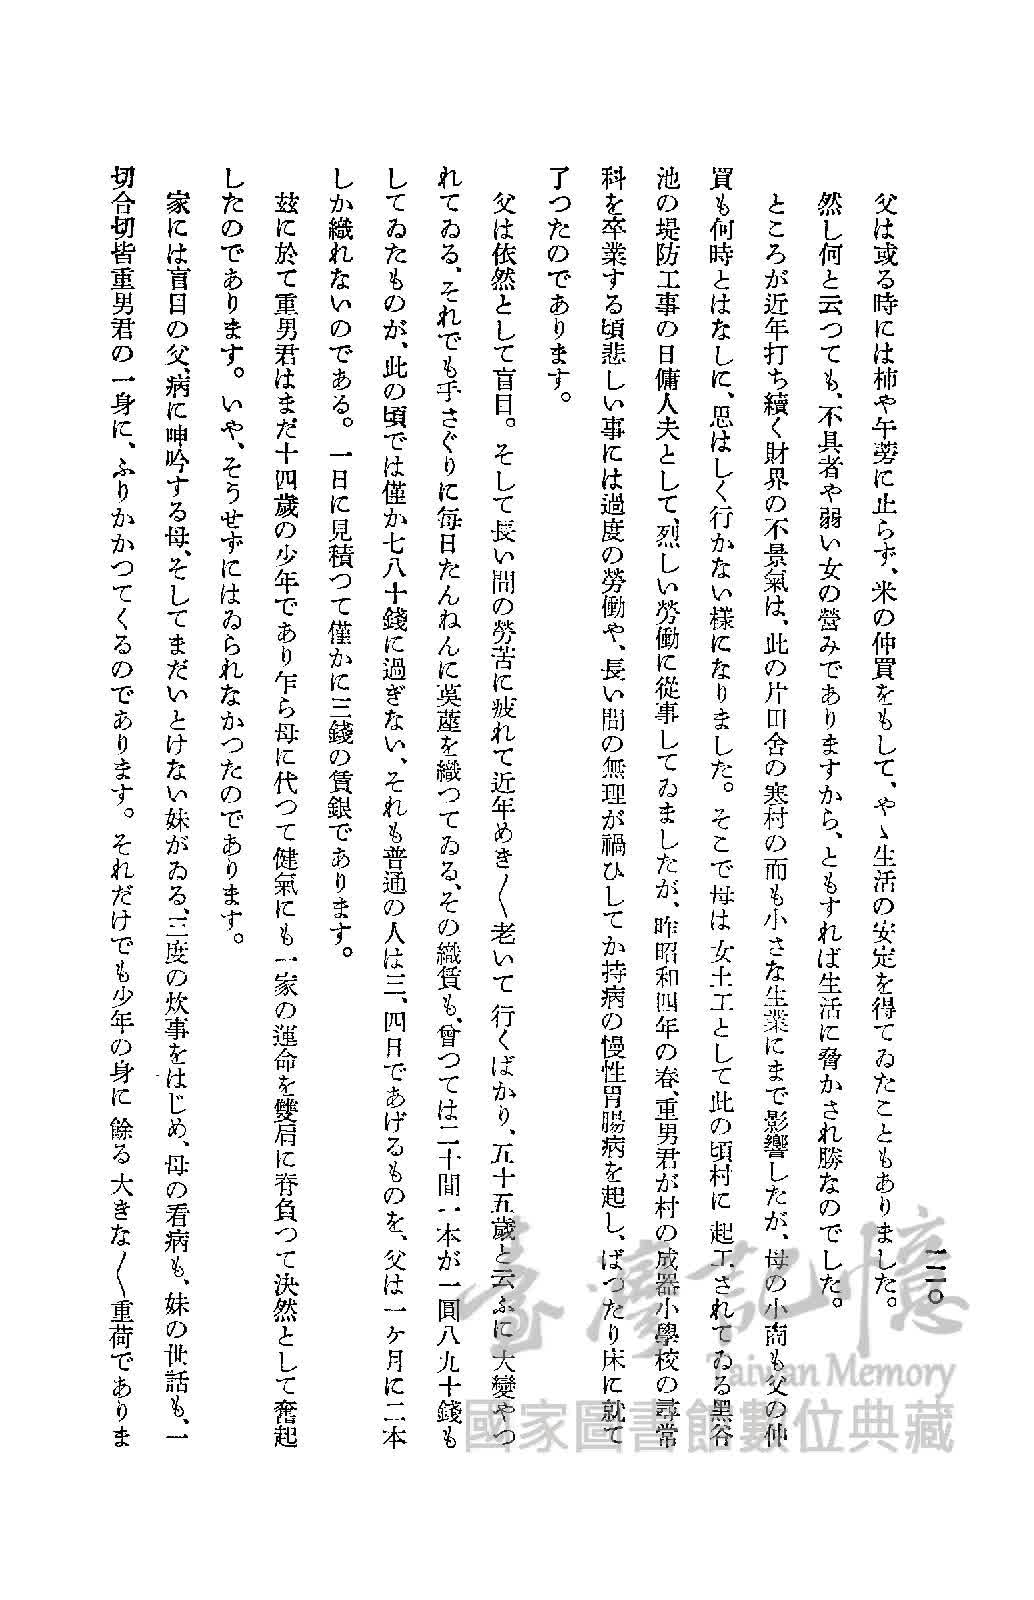 二二〇
父は或る時には柿や午蒡に止らず、米の仲買をもして、やゝ生活の安定を得てゐたこともありました。
然し何と云つても、不具者や弱い女の營みでありますから、ともすれば生活に脅かされ勝なのでした。
ところが近年打ち續く財界の不景氣は、此の片田舎の寒村の而も小さな生業にまで影響したが、母の小商も父の仲
買も何時とはなしに、思はしく行かない樣になりました。そこで母は女土工として此の頃村に起工されてゐる黑谷
池の堤防工事の日傭人夫として、烈しい勞働に從事してゐましたが、昨昭和四年の春、重男君が村の成器小學校の尋常
科を卒業する頃悲しい事には過度の勞働や、長い間の無理が禍ひしてか持病の慢性胃腸病を起し、ばつたり床に就て
了つたのであります。
父は依然として盲目。そして長い間の勞苦に疲れて近年めき〱老いて行くばかり、五十五歲と云ふに大變やつ
れてゐる、それでも手さぐりに每日たんねんに茣蓙を織つてゐる、その織賃も、曾つては二十間一本が一圓八九十錢も
してゐたものが、此の頃では僅か七八十錢に過ぎない、それも普通の人は三、四日であげるものを、父は一ヶ月に二本
しか織れないのである。一日に見積つて僅かに三錢の賃銀であります。
玆に於て重男君はまだ十四歲の少年であり乍ら母に代つて健氣にも一家の運命を雙肩に脊負つて決然として奮起
したのであります。いや、そうせずにはゐられなかつたのであります。
家には盲目の父、病に呻吟する母、そしてまだいとけない妹がゐる、三度の炊事をはじめ、母の看病も、妹の世話も、一
切合切皆重男君の一身に、ふりかかつてくるのであります。それだけでも少年の身に餘る大きな〱重荷でありま
臺灣記憶
Taiwan Memory
國家圖書館數位典藏